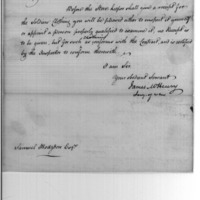 Before the Store keeper shall give a receipt for
the Soldiers Clothing you will be pleased either to inspect it yourself
or appoint a person properly qualified to examine it, no Receipt is
to be given, but for such clothing as conforms with the Contract and is certified
by the Inspector to conform therewith.
I am Sir
Your obedient Servant
James McHenry
Secy of war
Samuel Hodgdon Esqr